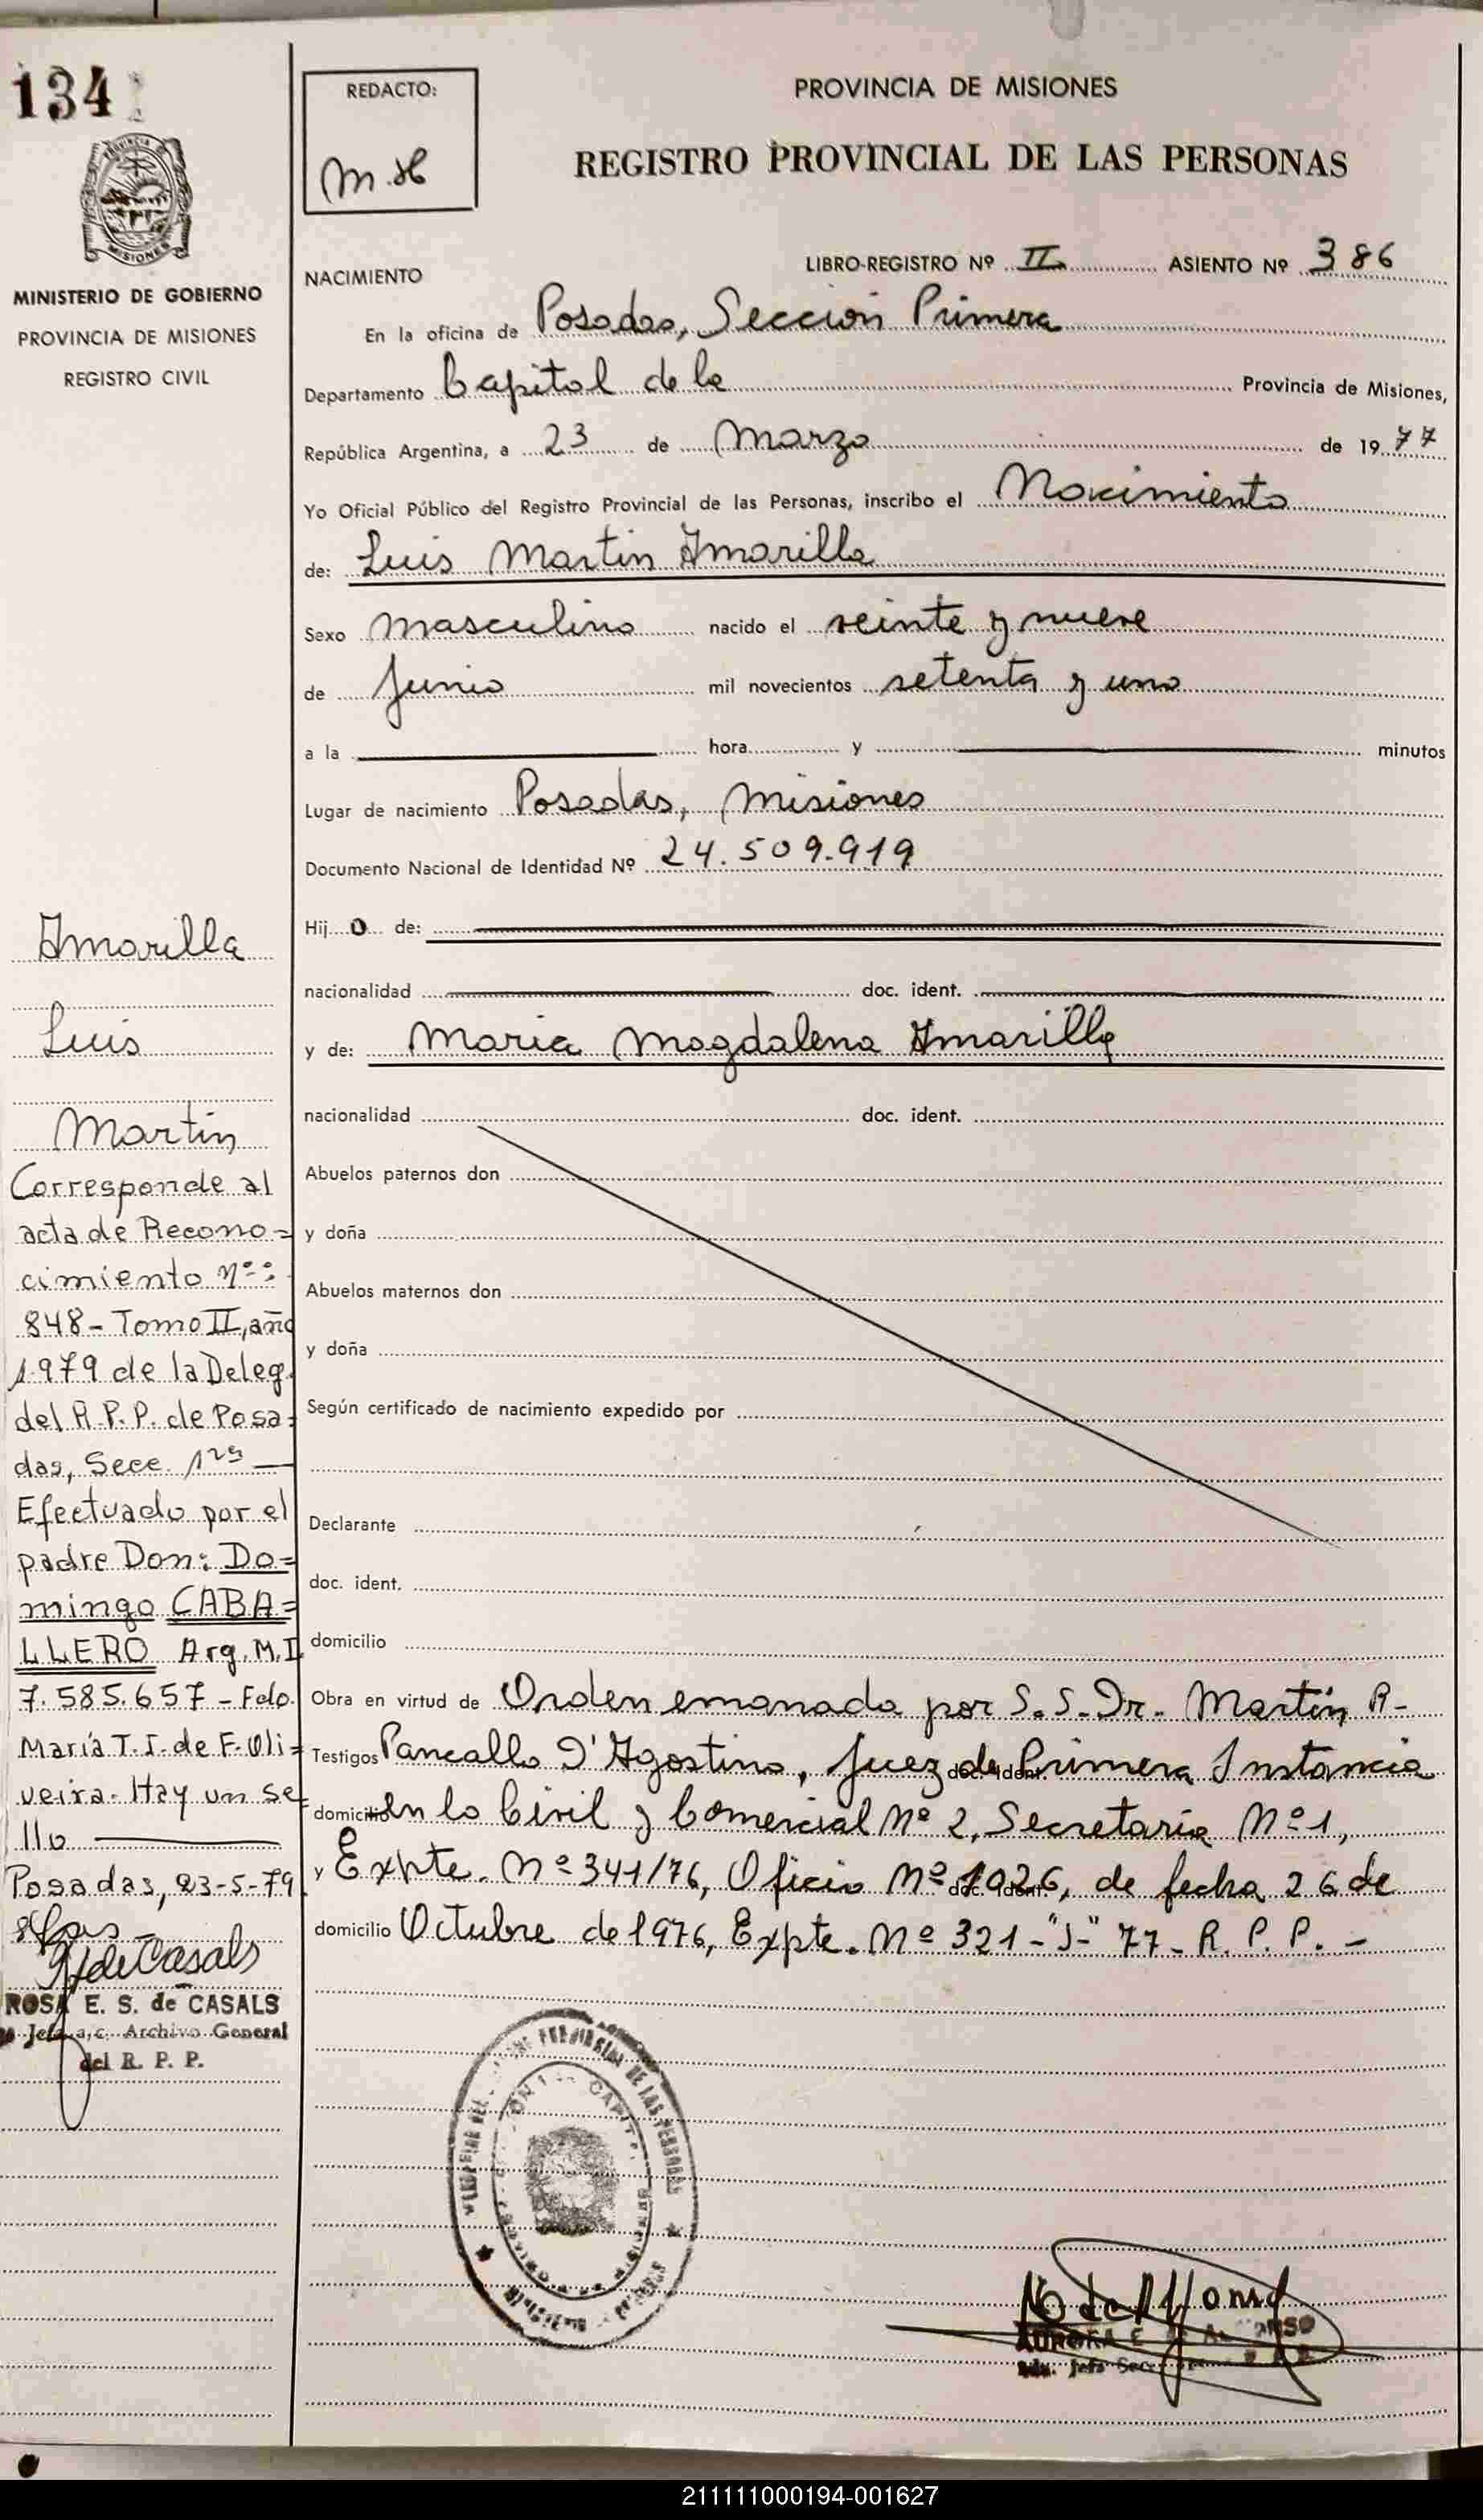 134
MINISTERIO DE GOBIERNO
PROVINCIA DE MISIONES
REGISTRO CIVIL
REDACTO:
M.H
PROVINCIA DE MISIONES
REGISTRO PROVINCIAL DE LAS PERSONAS
NACIMIENTO
LIBRO-REGISTRO Nº II ASIENTO Nº 386
En la oficina de Posadas, Sección Primera
Departamento Capital de la Provincia de Misiones,
República Argentina, a 23 de Marzo de 1977
Yo Oficial Público del Registro Provincial de las Personas, inscribo el Nacimiento
de: Luis Martin Amarilla
Sexo masculino nacido el veinte y nueve
de Junio mil novecientos setenta y uno
a la hora y minutos
Lugar de nacimiento Posadas, Misiones
Documento Nacional de Identidad Nº 24.509.919
Hij o de:
nacionalidad doc. ident.
y de: Maria Magdalena Amarilla
nacionalidad doc. ident.
Abuelos paternos don
y doña
Abuelos maternos don
y doña
Según certificado de nacimiento expedido por
Declarante
doc. ident.
domicilio
Obra en virtud de Orden emanada por S.S. Dr. Martín R-
Testigos Pancallo D'Agostino, Juez de Primera Instancia
domicilio en lo Civil y Comercial Nº 2, Secretaría Nº 1,
y Expte. Nº 341/76, Oficio Nº 1026, de fecha 26 de
domicilio Octubre de 1976, Expte. Nº 321-"J"-77- R. P. P. -
Amarilla
Luis
Martin
Corresponde al
acta de Recono=
cimiento Nº:
848 - Tomo II, año
1.979 de la Deleg.
del R.P.P. de Posa=
das, Secc. 1ra
Efectuado por el
padre Don: Do=
mingo CABA=
LLERO Arg. M.I
7.585.657 - Fdo.
María T. I. de F. Oli=
veira. Hay un se
llo
Posadas, 23-5-79.
ROSA E. S. de CASALS
Jefa a/c. Archivo General
del R. P. P.
211111000194-001627